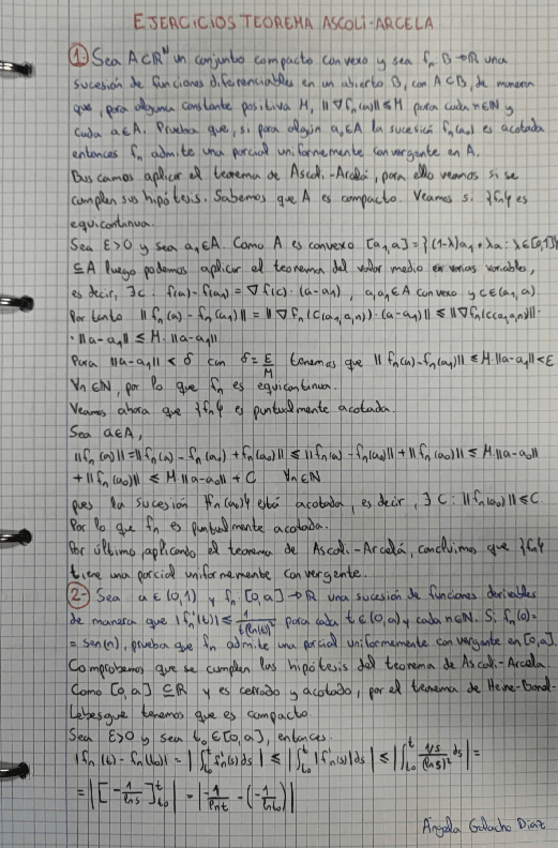 EJERCICIOS TEOREMA ASCOLI-ARCELA
① Sea A⊂ℝᴺ un conjunto compacto convexo y sea fₙ: B→ℝ una
sucesión de funciones diferenciables en un abierto B, con A⊂B, de manera
que, para alguna constante positiva M, ||∇fₙ(a)|| ≤ M para cada n∈ℕ y
cada a∈A. Prueba que, si para algún a₀∈A la sucesión fₙ(a₀) es acotada
entonces fₙ admite una parcial uniformemente convergente en A.
Buscamos aplicar el teorema de Ascoli-Arcelá, para ello veamos si se
cumplen sus hipótesis. Sabemos que A es compacto. Veamos si {fₙ} es
equicontinua.
Sea ε>0 y sea a₁∈A. Como A es convexo [a₁,a] = {(1-λ)a₁+λa: λ∈[0,1]}
⊆A luego podemos aplicar el teorema del valor medio en varias variables,
es decir, ∃c: f(a)-f(a₁) = ∇f(c)·(a-a₁), a,a₁∈A convexo y c∈(a₁,a)
Por tanto ||fₙ(a)-fₙ(a₁)|| = ||∇fₙ(c(a₁,a,n))·(a-a₁)|| ≤ ||∇fₙ(c(a,a₁,n))||·
·||a-a₁|| ≤ M·||a-a₁||
Para ||a-a₁|| < δ con δ = ε/M tenemos que ||fₙ(a)-fₙ(a₁)|| ≤ M·||a-a₁|| < ε
∀n∈ℕ, por lo que fₙ es equicontinua.
Veamos ahora que {fₙ} es puntualmente acotada.
Sea a∈A,
||fₙ(a)|| = ||fₙ(a)-fₙ(a₀)+fₙ(a₀)|| ≤ ||fₙ(a)-fₙ(a₀)|| + ||fₙ(a₀)|| ≤ M·||a-a₀||
+||fₙ(a₀)|| ≤ M·||a-a₀|| + C ∀n∈ℕ
pues la sucesión {fₙ(a₀)} está acotada, es decir, ∃C: ||fₙ(a₀)|| ≤ C.
Por lo que fₙ es puntualmente acotada.
Por último, aplicando el teorema de Ascoli-Arcelá, concluimos que {fₙ}
tiene una parcial uniformemente convergente.
②- Sea a∈(0,1) y fₙ: [0,a]→ℝ una sucesión de funciones derivables
de manera que |fₙ'(t)| ≤ 1/(t(ln t)²) para cada t∈(0,a) y cada n∈ℕ. Si fₙ(0)=
= sen(n), prueba que fₙ admite una parcial uniformemente convergente en [0,a].
Comprobemos que se cumplen las hipótesis del teorema de Ascoli-Arcela.
Como [0,a] ⊆ℝ y es cerrado y acotado, por el teorema de Heine-Borel-
Lebesgue tenemos que es compacto.
Sea ε>0 y sea t₀∈[0,a], entonces
|fₙ(t)-fₙ(t₀)| = |∫ₜ₀ᵗ fₙ'(s)ds| ≤ |∫ₜ₀ᵗ |fₙ'(s)|ds| ≤ |∫ₜ₀ᵗ (1/s)/(ln s)² ds| =
= |[-1/ln s]ₜ₀ᵗ| = |-1/ln t - (-1/ln t₀)|
Ángela Galacho Díaz